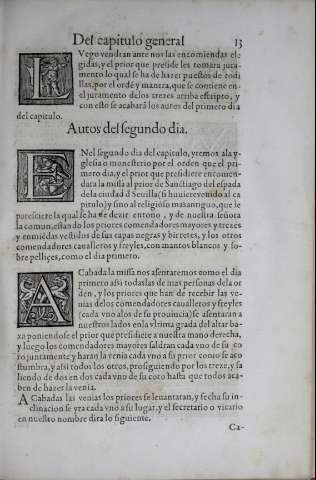 Del capitulo general 13
LVego vendran ante nos las encomiendas ele
gidas, y el prior que preside les tomara jura-
mento lo qual se ha de hazer puestos de rodi
llas, por el ordē y manera, que se contiene en
el juramento delos trezes arriba escripto, y
con esto se acabarā los autos del primero dia
del capitulo.
Autos del segundo dia.
ENel segundo dia del capitulo, yremos ala y-
glesia o monesterio por el orden que el pri-
mero dia, y el prior que presidiere encomen-
dara la missa al prior de Sanctiago del espada
de la ciudad d Seuilla (si huuiere venido al ca
pitulo) y sino al religioso mas antiguo, que le
paresciere la qual se ha de dezir en tono, y de nuestra señora
la comun, estando los priores comendadores mayores y trezes
y enmiēdas vestidos de sus capas negras y birretes, y los otros
comendadores caualleros y freyles, con mantos blancos y so-
bre pelliçes, como el dia primero.
ACabada la missa nos asentaremos como el dia
primero assi todas las de mas personas dela or
den, y los priores que han de recebir las ve-
nias delos comendadores caualleros y freyles
(cada vno alos de su prouincia) se asentaran a
nuestros lados enla vltima grada del altar ba-
xa poniendose el prior que presidiere a nuestra mano derecha,
y luego los comendadores mayores saldran cada vno de su co
ro juntamente y haran la venia cada vno a su prior como se aco
stumbra, y assi todos los otros, prosiguiendo por los treze, y sa
liendo de dos en dos cada vno de su coro hasta que todos aca-
ben de hazer la venia.
A Cabadas las venias los priores se leuantaran, y fecha su in-
clinacion se yra cada vno a su lugar, y el secretario o vicario
en nuestro nombre dira lo siguiente.
Ca-